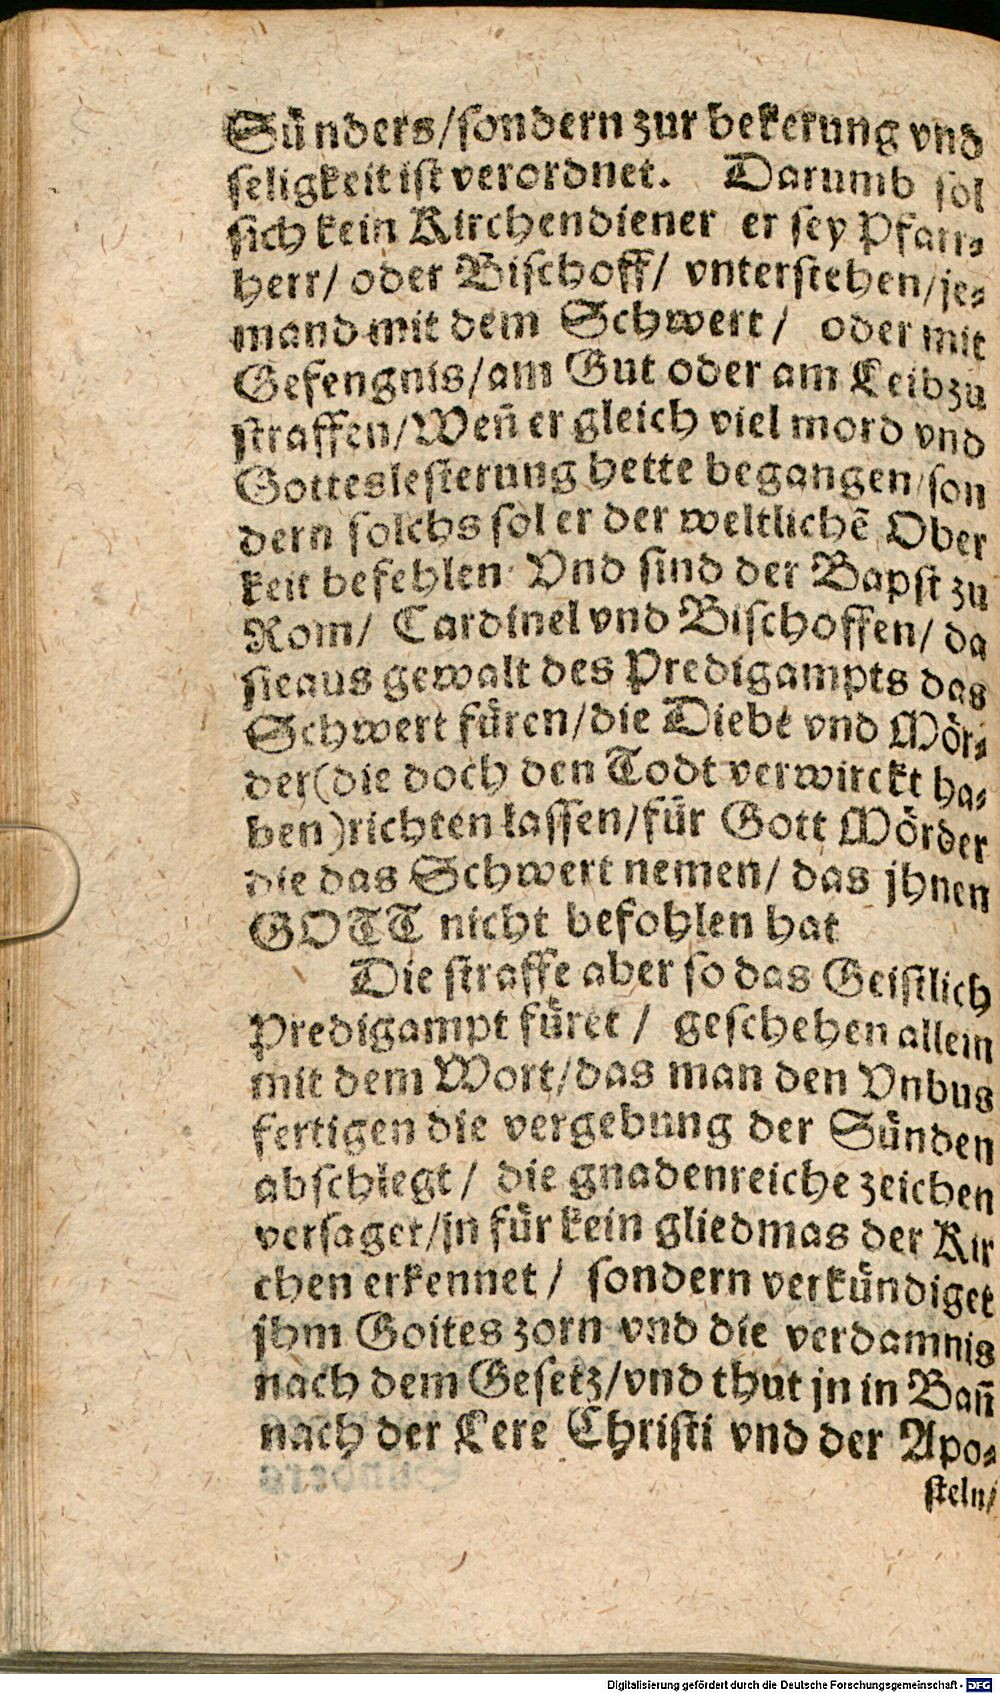 Sünders/sondern zur bekerung vnd
seligkeit ist verordnet. Darumb sol
sich kein Kirchendiener er sey Pfarr⸗
herr/ oder Bischoff/ vnterstehen/je⸗
mand mit dem Schwert/ oder mit
Gefengnis/am Gut oder am Leib zu
straffen/Weñ er gleich viel mord vnd
Gotteslesterung hette begangen/son
dern solchs sol er der weltlichẽ Ober
keit befehlen Vnd sind der Bapst zu
Rom/ Cardinel vnd Bischoffen/ da
sie aus gewalt des Predigampts das
Schwert füren/die Diebe vnd Mör⸗
der(die doch den Todt verwirckt ha⸗
ben)richten lassen/für Gott Mörder
die das Schwert nemen/ das jhnen
GOTT nicht befohlen hat
Die straffe aber so das Geistlich
Predigampt füret/ geschehen allein
mit dem Wort/das man den Vnbus
fertigen die vergebung der Sünden
abschlegt/ die gnadenreiche zeichen
versaget/jn für kein gliedmas der Kir
chen erkennet/ sondern verkündiget
jhm Gottes zorn vnd die verdamnis
nach dem Gesetz/vnd thut jn in Bañ
nach der Lere Christi vnd der Apo⸗
steln/
Digitalisierung gefördert durch die Deutsche Forschungsgemeinschaft - DFG